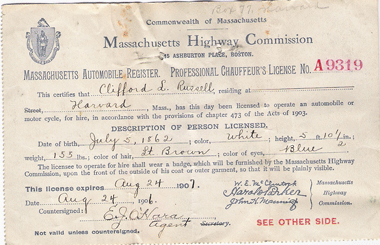 Commonwealth of Massachusetts
Massachusetts Highway Commission
ASHBURTON PLACE, BOSTON.
MASSACHUSETTS AUTOMOBILE REGISTER. PROFESSIONAL CHAUFFEUR'S LICENSE NO. A9319
This certifies that Clifford L. Russell residing at
Street, Harvard Mass., has this day been licensed to operate an automobile or motor
cycle, for hire, in accordance with the provisions of chapter 473 of the Acts of 1903.
DESCRIPTION OF PERSON LICENSED.
Date of birth, July 5, 1862, color, White, height, 5 ft. 10 1/2 in.,
weight, 155 lbs., color of hair, Lt Brown color of eyes, Blue
The licensee to operate for hire shall wear a badge, which will be furnished by the Massachusetts Highway
Commission, upon the front of the outside of his coat or outer garment, so that it will be plainly visible.
This license expires Aug 24 1907.
Date, Aug 24 1906.
W. E. McClintock
Harold Parker
John H. Manning
Massachusetts
Highway
Commission.
Countersigned:
E. J. O'Hara
Agent Secretary.
Not valid unless countersigned.
SEE OTHER SIDE.